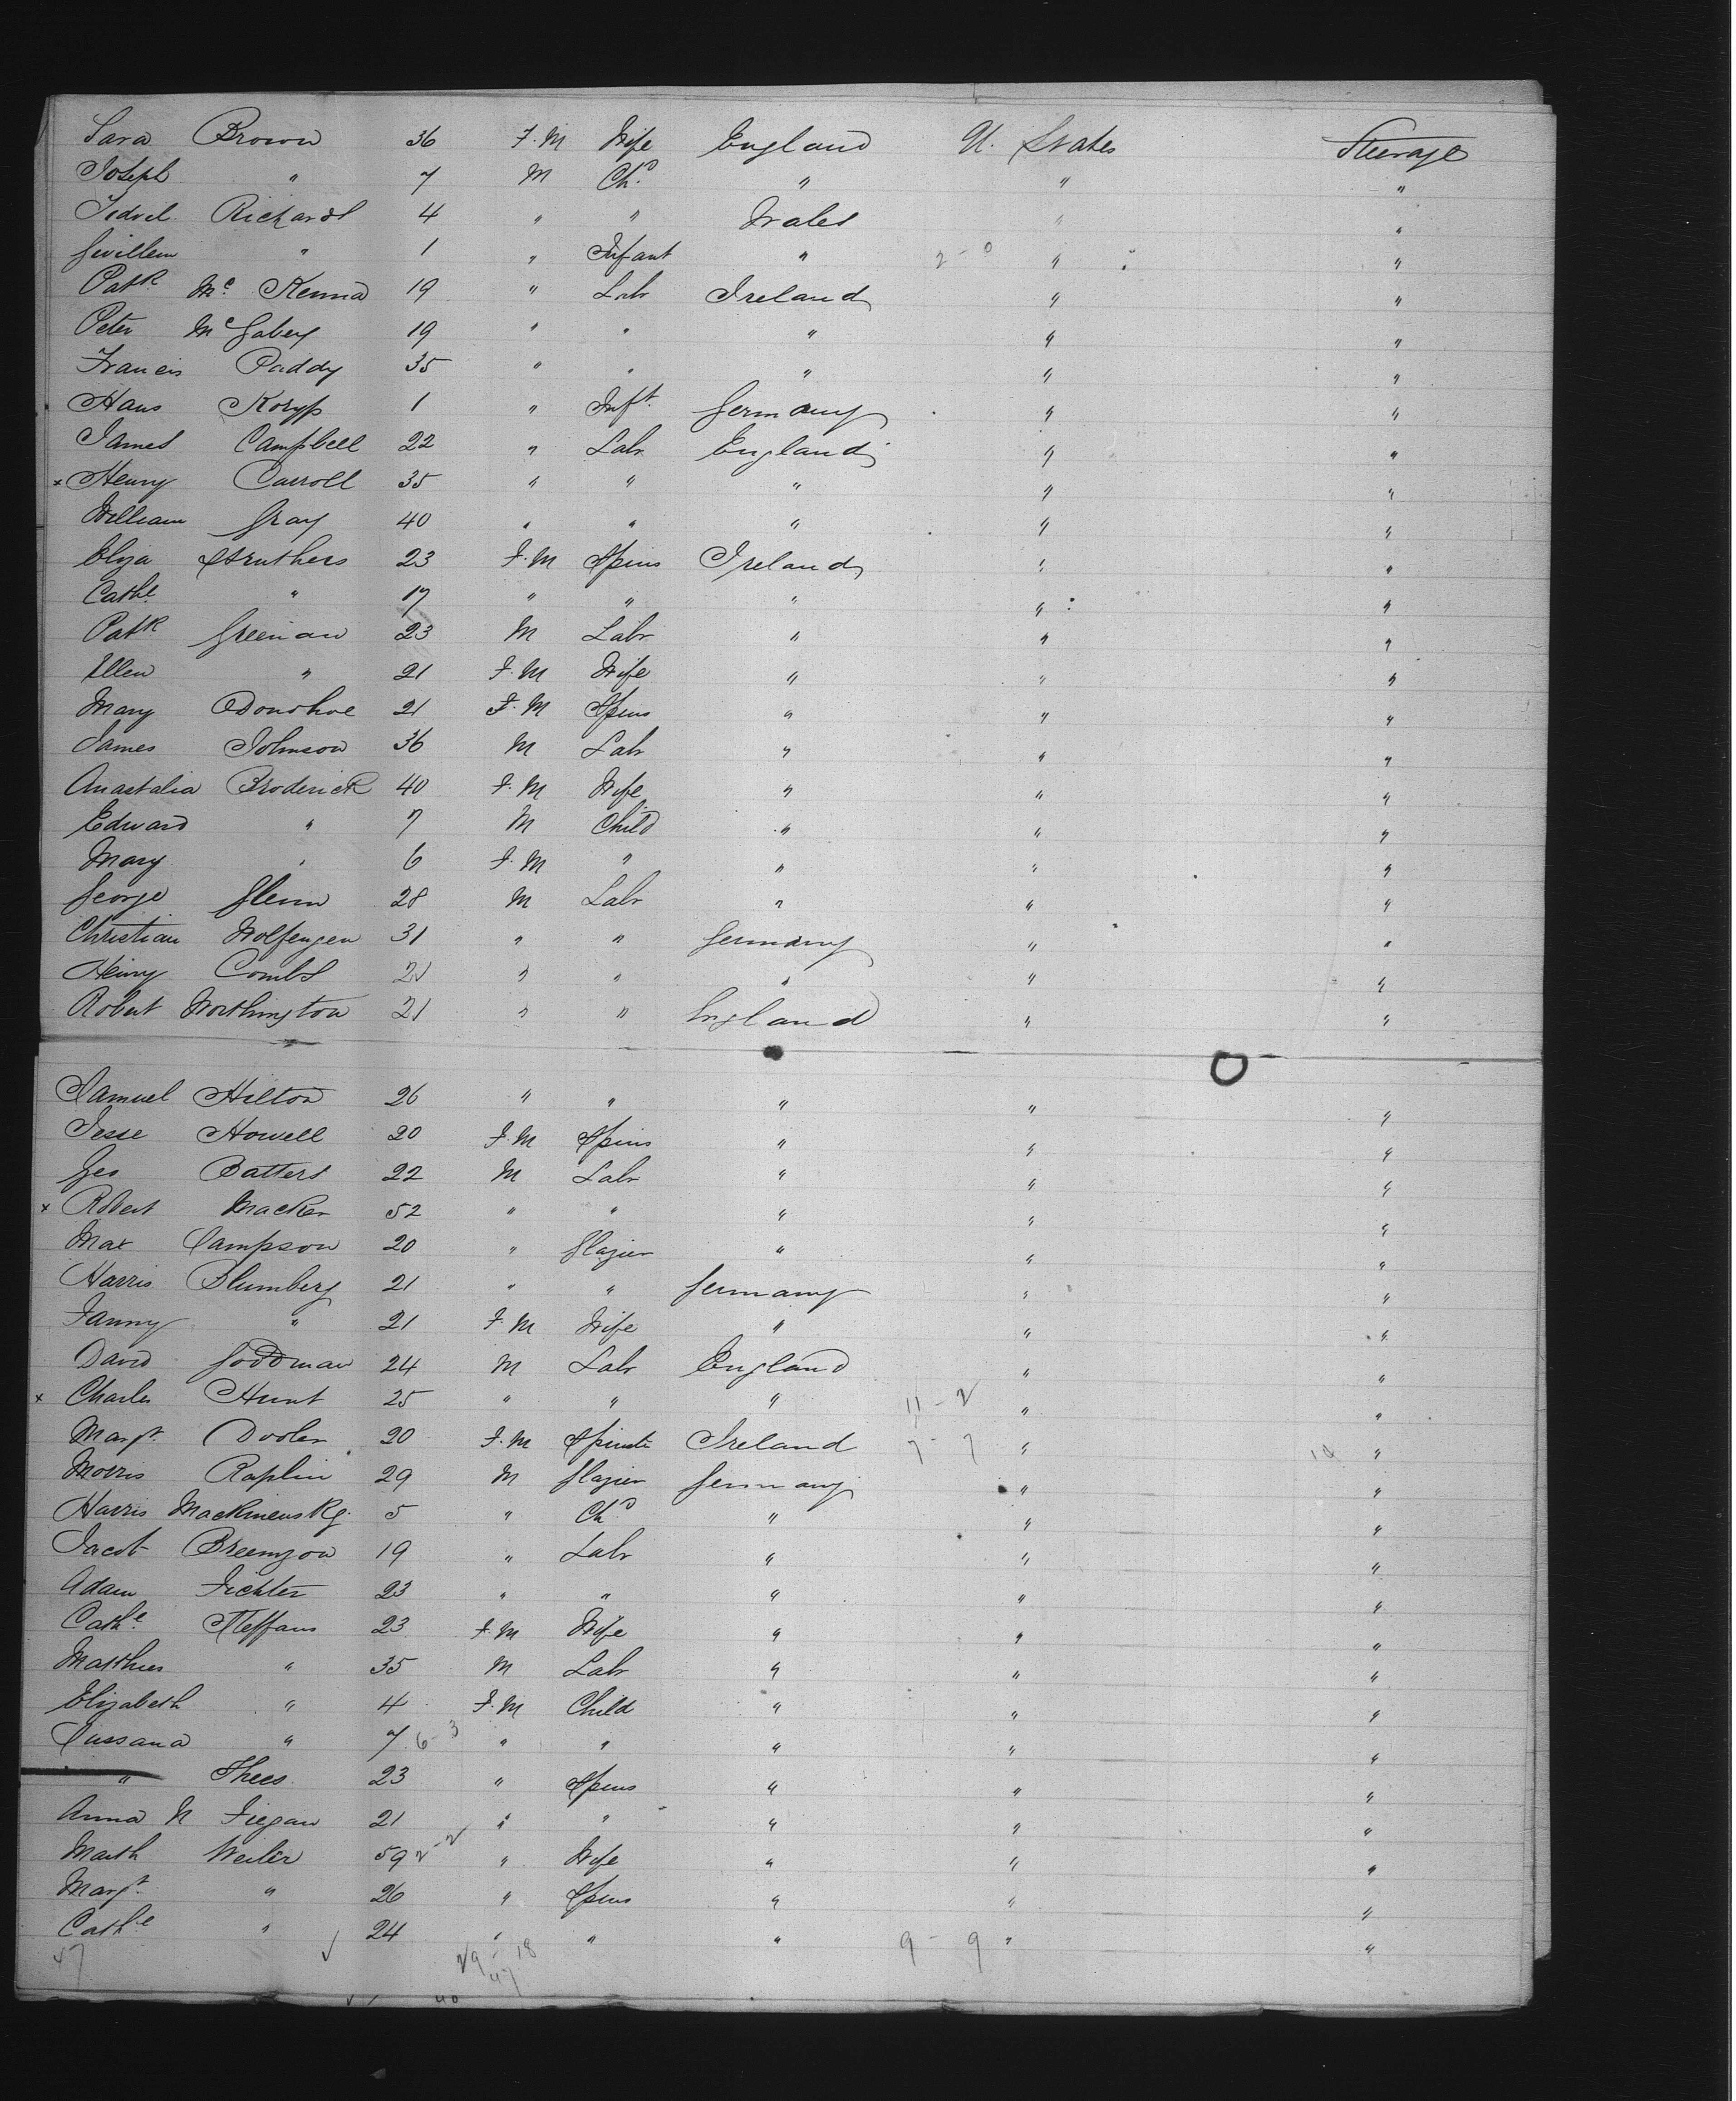 Sara Brown 36 F.M Wife England U. States Steerage
Joseph " 7 M Ch.d " " "
Tedvil Richards 4 " " Wales " "
Gwillem " 1 " Infant " 2-0 " "
Patk Mc Kenna 19 " Labr Ireland " "
Peter McGabey 19 " " " " "
Francis Paddy 35 " " " " "
Hans Koryp 1 " Inft. Germany " "
James Campbell 22 " Labr England " "
x Henry Carroll 35 " " " " "
William Gray 40 " " " " "
Eliza Struthers 23 F.M Spins Ireland " "
Cathe " 17 " " " " "
Patk Greenan 23 M Labr " " "
Ellen " 21 F.M Wife " " "
Mary ODonohoe 21 F.M Spins " " "
James Johnson 36 M Labr " " "
Anastalia Broderick 40 F.M Wife " " "
Edward " 7 M Child " " "
Mary " 6 F.M " " " "
George Glenn 28 M Labr " " "
Christian Wolfengen 31 " " Germany " "
Henry Combs 21 " " " " "
Robert Worthington 21 " " England " "
Samuel Hilton 26 " " " " "
Jesse Howell 20 F.M Spins " " "
Geo Batters 22 M Labr " " "
x Robert Macker 52 " " " " "
Max Sampson 20 " Glazier " " "
Harris Blumberg 21 " " Germany " "
Fanny " 21 F.M Wife " " "
David Goodman 24 M Labr England " "
x Charles Hunt 25 " " " 11-2 " "
Margt. Dooler 20 F.M Spinste Ireland 7-7 " "
Morris Raplin 29 M Glazier Germany " "
Harris Mackinensky 5 " Chd " " "
Jacob Breemzon 19 " Labr " " "
Adam Fichter 23 " " " " "
Cathe. Steffans 23 F.M Wife " " "
Matthies " 35 M Labr " " "
Elizabeth " 4 F.M Child " " "
Sussana " 7 6-3 " " " " "
" Thees 23 " Spins " " "
Anna M Fiegan 21 " " " " "
Marth Weiler 59 2-2 " Wife " " "
Margt. " 26 " Spins " " "
Cathe " 24 " " " 9-9 " "
47 29-18
47